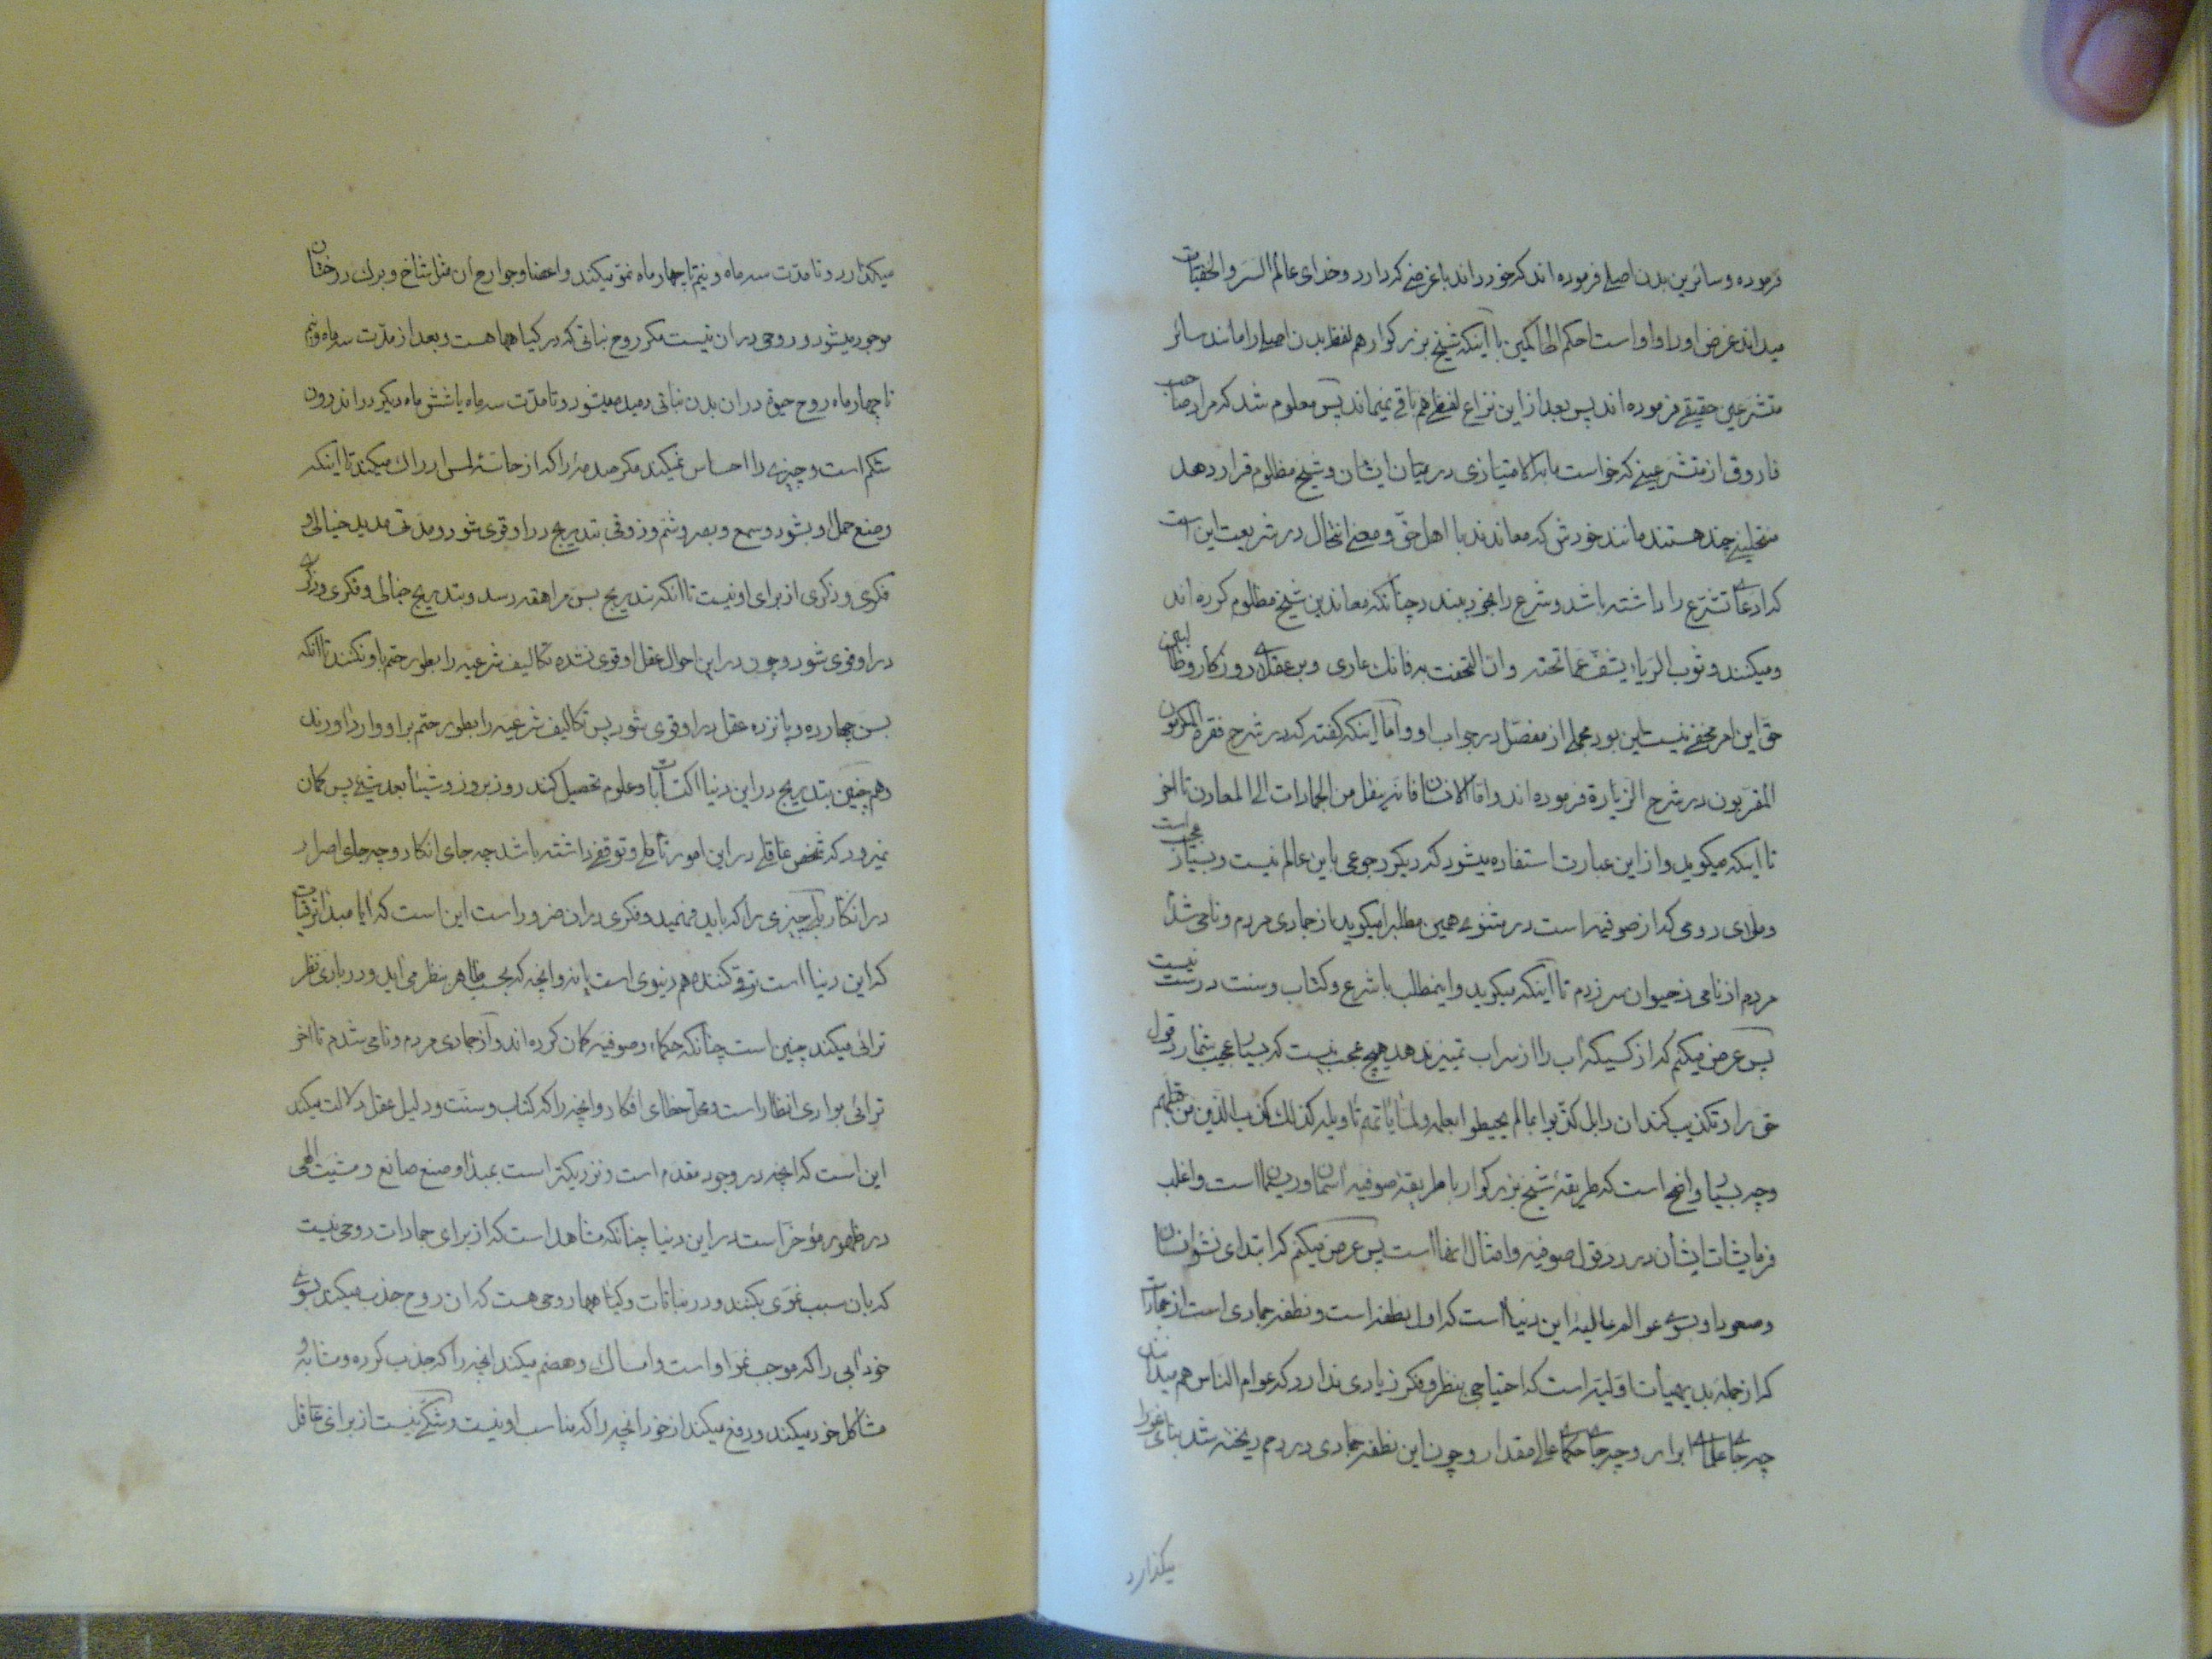 فرموده و سائرین بدن اصلی فرموده اند که خود داند با غرضی که دارد و خدای عالم السر و الخفیات
میداند غرض او را و او است احکم الحاکمین با اینکه شیخ بزرگوار هم لفظ بدن اصلی را مانند سائر
متشرعین حقیقی فرموده اند پس بعد از این نزاع لفظی هم باقی نمیماند پس معلوم شد که مراد صاحب
فاروق از متشرعینی که خواست ما به الامتیازی در میان ایشان و شیخ مظلوم قرار دهد
منتحلینی چند هستند مانند خودش که معاندند با اهل حق و معنی انتحال در شریعت این است
که ادعای تشرع را داشته باشد و شرع را بخود ببندد چنانکه معاندین شیخ مظلوم کرده اند
و میکنند و ثوب الریاء یشف عما تحته و ان التحفت به فانک عاری و بر عقلای روزگار و طالبین
حق این امر مخفی نیست این بود مجملی از مفصل در جواب او و اما اینکه گفته که در شرح فقره المکرمون
المقربون در شرح الزیارة فرموده اند و اما الانسان فانه ینقل من الجمادات الی المعادن تا آخر
تا اینکه میگوید و از این عبارت استفاده میشود که دیگر رجوعی باین عالم نیست و بسیار عجب است
و ملای رومی که از صوفیه است در مثنوی همین مطلب را میگوید از جمادی مردم و نامی شدم
مردم از نامی ز حیوان سر زدم تا اینکه میگوید و اینمطلب با شرع و کتاب و سنت درست نیست
پس عرض میکنم که از کسیکه آب را از سراب تمیز ندهد هیچ عجب نیست که بسیار عجیب شمارد قول
حق را و تکذیب کند ان را بل کذبوا بما لم یحیطوا بعلمه و لما یأتهم تأویله کذلک کذب الذین من قبلهم
و چه بسیار واضح است که طریقهٔ شیخ بزرگوار با طریقهٔ صوفیه آسمان و ریسمان است و اغلب
فرمایشات ایشان در رد قول صوفیه و امثال انها است پس عرض میکنم که ابتدای نشو انسان
و صعود او بسوی عوالم عالیه این دنیا است که اول نطفه است و نطفه جمادی است از جمادات
که از جمله بدیهیات اولیه است که احتیاجی بنظر و فکر زیادی ندارد که عوام الناس هم میدانند
چه جای علمای ابرار و چه جای حکمای عالی مقدار و چون این نطفه جمادی در رحم ریخته شد بنای نمو را
میگذارد
میگذارد و تا مدت سه ماه و نیم تا چهار ماه نمو میکند و اعضا و جوارح آن مثل شاخ و برک درختان
موجود میشود و روحی در ان نیست مگر روح نباتی که در گیاهها هست و بعد از مدت سه ماه و نیم
تا چهار ماه روح حیوة در ان بدن نباتی دمیده میشود و تا مدت سه ماه یا شش ماه دیگر در اندرون
شکم است و چیزی را احساس نمیکند مگر صدمهٔ را که از حاسهٔ لمس ادراک میکند تا اینکه
وضع حمل او بشود و سمع و بصر و شم و ذوقی بتدریج در او قوی شود و مدتی مدید خیالی و
فکری و ذکری از برای او نیست تا انکه بتدریج بسن مراهقه رسد و بتدریج خیالی و فکری و ذکری
در او قوی شود و چون در این احوال عقل او قوی نشده تکالیف شرعیه را بطور حتم باو نکنند تا انکه
بسن چهارده و پانزده عقل در او قوی شود پس تکالیف شرعیه را بطور حتم بر او وارد آورند
و هم چنین بتدریج در این دنیا اکتسابات و علوم تحصیل کند روز بروز و شیئا بعد شیئ پس گمان
نمیرود که شخص عاقلی در این امور تأملی و توقفی داشته باشد چه جای انکار و چه جای اصرار
در انکار بلی چیزی را که باید فهمید و فکری در ان ضرور است این است که ایا مبدأ ترقیات
که این دنیا است ترقی کننده هم دنیوی است یا نه و انچه که بحسب ظاهر بنظر می آید و در بادی نظر
ترائی میکند چنین است چنانکه حکماء و صوفیه گمان کرده اند و از جمادی مردم و نامی شدم تا اخر
ترائی بوادی انظار است و محل خطای افکار و انچه را که کتاب و سنت و دلیل عقل دلالت میکند
این است که انچه در وجود مقدم است و نزدیکتر است بمبدأ و صنع صانع و مشیت الهی
در ظهور مؤخر است در این دنیا چنانکه مشاهد است که از برای جمادات روحی نیست
که بان سبب نموی بکنند و در نباتات و گیاهها روحی هست که ان روح جذب میکند بسوی
خود آبی را که موجب نمو او است و امساک و هضم میکند انچه را که جذب کرده و مشابه و
مشاکل خود میکند و دفع میکند از خود انچه را که مناسب او نیست و شکی نیست از برای عاقل